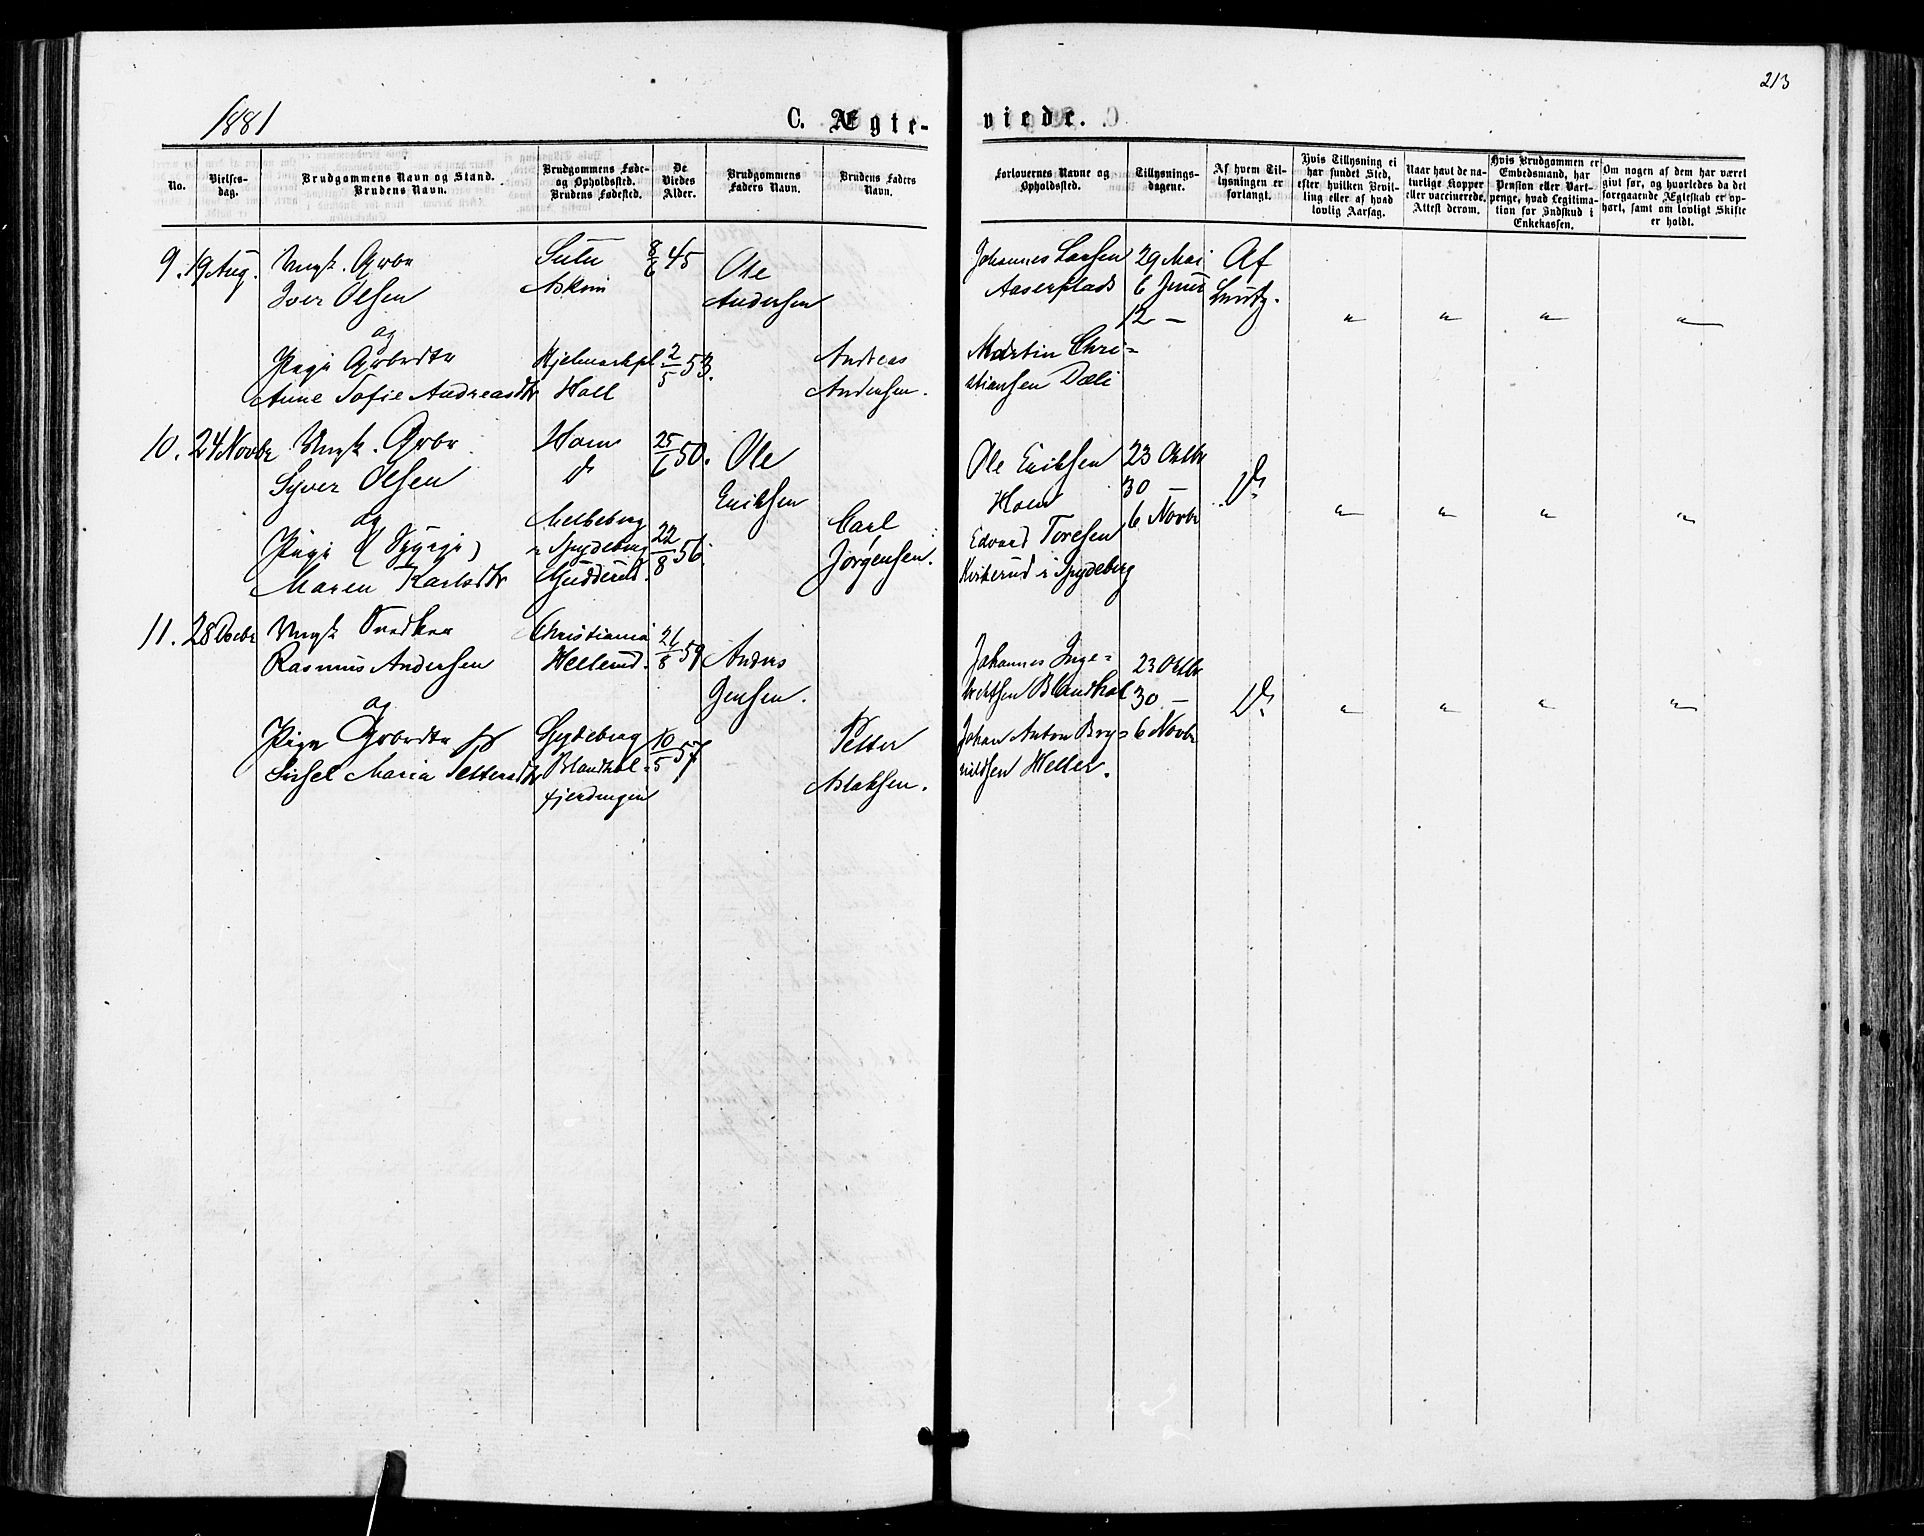 213
1881
C. Ægte-
viede.
No.
Vielses-
dag.
Brudgommens Navn og Stand.
Brudens Navn.
Brudgommens Føde-
og Opholdssted.
Brudens Fødested.
De
Viedes
Alder.
Brudgommens
Faders Navn.
Brudens Faders
Navn.
Forlovernes Navne og
Opholdssted.
Tillysnings-
dagene.
Af hvem Til-
lysningen er
forlangt.
Hvis Tillysning ei
har fundet Sted,
efter hvilken Bevil-
ling eller af hvad
lovlig Aarsag.
Naar havt de na-
turlige Kopper
eller vaccinerede.
Attest derom.
Hvis Brudgommen er
Embedsmand, har
Pension eller Vart-
penge, hvad Legitima-
tion for Indskud i
Enkekassen.
Om nogen af dem har været
givt før, og hvorledes da det
foregaaende Ægteskab er op-
hørt, samt om lovligt Skifte
er holdt.
9. 19 Aug.
Ungk. Grbr
Iver Olsen
og
Pige Grbrdtr
Anne Sofie Andreasdtr
Askim
Hjelmarkpl
Holl
8/6 45
2/5 53.
Ole
Andersen
Andreas
Andersen.
Johannes Larsen
Aaserplads
Martin Chri=
stiansen Dæli
29 Mai
6 Juni
12 —
Af
" " " "
10. 24 Novbr
Ungk. Grbr
Syver Olsen
og
Pige (Syerje)
Maren Karlsdtr
Holm
do
Melbeberg
i Spydeberg
Gudderud.
25/6 50.
22/8 56.
Ole
Eriksen
Carl
Jørgensen.
Ole Eriksen
Holm
Edvard Toresen
i Spydeberg
23 Oktbr
30 —
6 Novbr
Do
" " " "
11. 28 Decbr
Ungk Snedker
Rasmus Andersen
og
Pige Grbrdtr
Sissel Maria Pettersdtr
Christiania
Hellerud.
Spydeberg
Blandhol=
fjerdingen
21/8 59
10/5 57
Anders
Jensen.
Petter
Aslaksen.
Johannes Inge=
bretsen Blandhol
Johan Anton Bry=
nildsen Heller.
23 Oktbr
30 —
6 Novbr
Do
" " " "